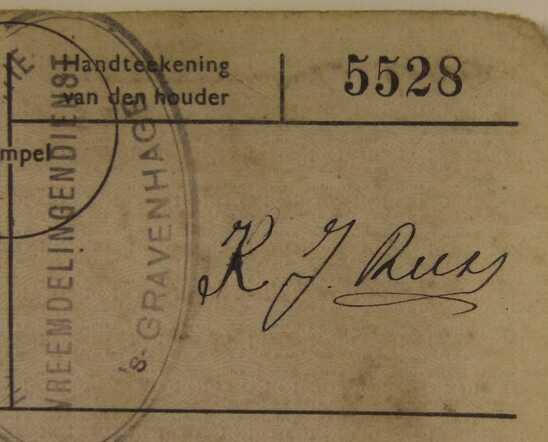 Handteekening
van den houder
5528
mpel
VREEMDELINGENDIENST
'S-GRAVENHAGE
K J.